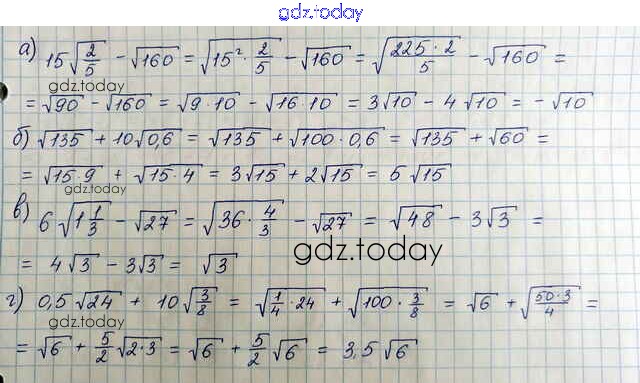 gdz.today
а) 15√(2/5) − √160 = √(15² · 2/5) − √160 = √((225 · 2)/5) − √160 =
gdz.today
= √90 − √160 = √(9 · 10) − √(16 · 10) = 3√10 − 4√10 = −√10
б) √135 + 10√0,6 = √135 + √(100 · 0,6) = √135 + √60 =
= √(15 · 9) + √(15 · 4) = 3√15 + 2√15 = 5√15
gdz.today
в) 6 · √(1 1/3) − √27 = √(36 · 4/3) − √27 = √48 − 3√3 =
gdz.today
= 4√3 − 3√3 = √3
г) 0,5√24 + 10√(3/8) = √(1/4 · 24) + √(100 · 3/8) = √6 + √((50 · 3)/4) =
gdz.today
= √6 + 5/2 √(2 · 3) = √6 + 5/2 √6 = 3,5√6